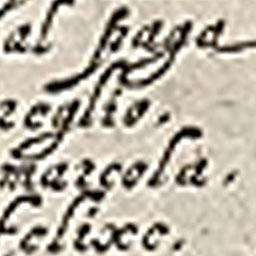 al paga
zeglio.
marcola.
felixe.